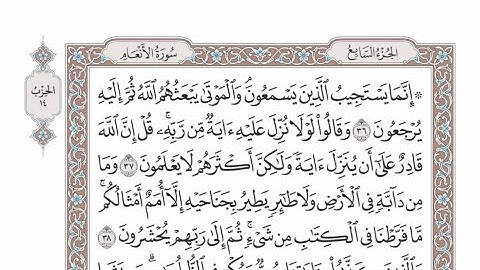 الجزء السابع
سورة الأنعام
الحزب
١٤
۞ إِنَّمَا يَسْتَجِيبُ ٱلَّذِينَ يَسْمَعُونَۘ وَٱلْمَوْتَىٰ يَبْعَثُهُمُ ٱللَّهُ ثُمَّ إِلَيْهِ
يُرْجَعُونَ ٣٦ وَقَالُوا۟ لَوْلَا نُزِّلَ عَلَيْهِ ءَايَةٌ مِّن رَّبِّهِۦۚ قُلْ إِنَّ ٱللَّهَ
قَادِرٌ عَلَىٰٓ أَن يُنَزِّلَ ءَايَةً وَلَـٰكِنَّ أَكْثَرَهُمْ لَا يَعْلَمُونَ ٣٧ وَمَا
مِن دَآبَّةٍ فِى ٱلْأَرْضِ وَلَا طَـٰٓئِرٍ يَطِيرُ بِجَنَاحَيْهِ إِلَّآ أُمَمٌ أَمْثَالُكُمۚ
مَّا فَرَّطْنَا فِى ٱلْكِتَـٰبِ مِن شَىْءٍۚ ثُمَّ إِلَىٰ رَبِّهِمْ يُحْشَرُونَ ٣٨